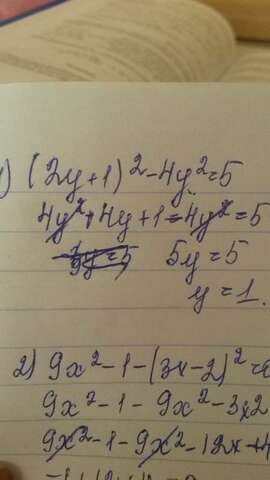 1) (2y+1)²-4y²=5
4y²+4y+1-4y²=5
5y=5
y=1.
2) 9x²-1-(3x-2)²=
9x²-1-9x²-3x2
9x²-1-9x²-12x+4